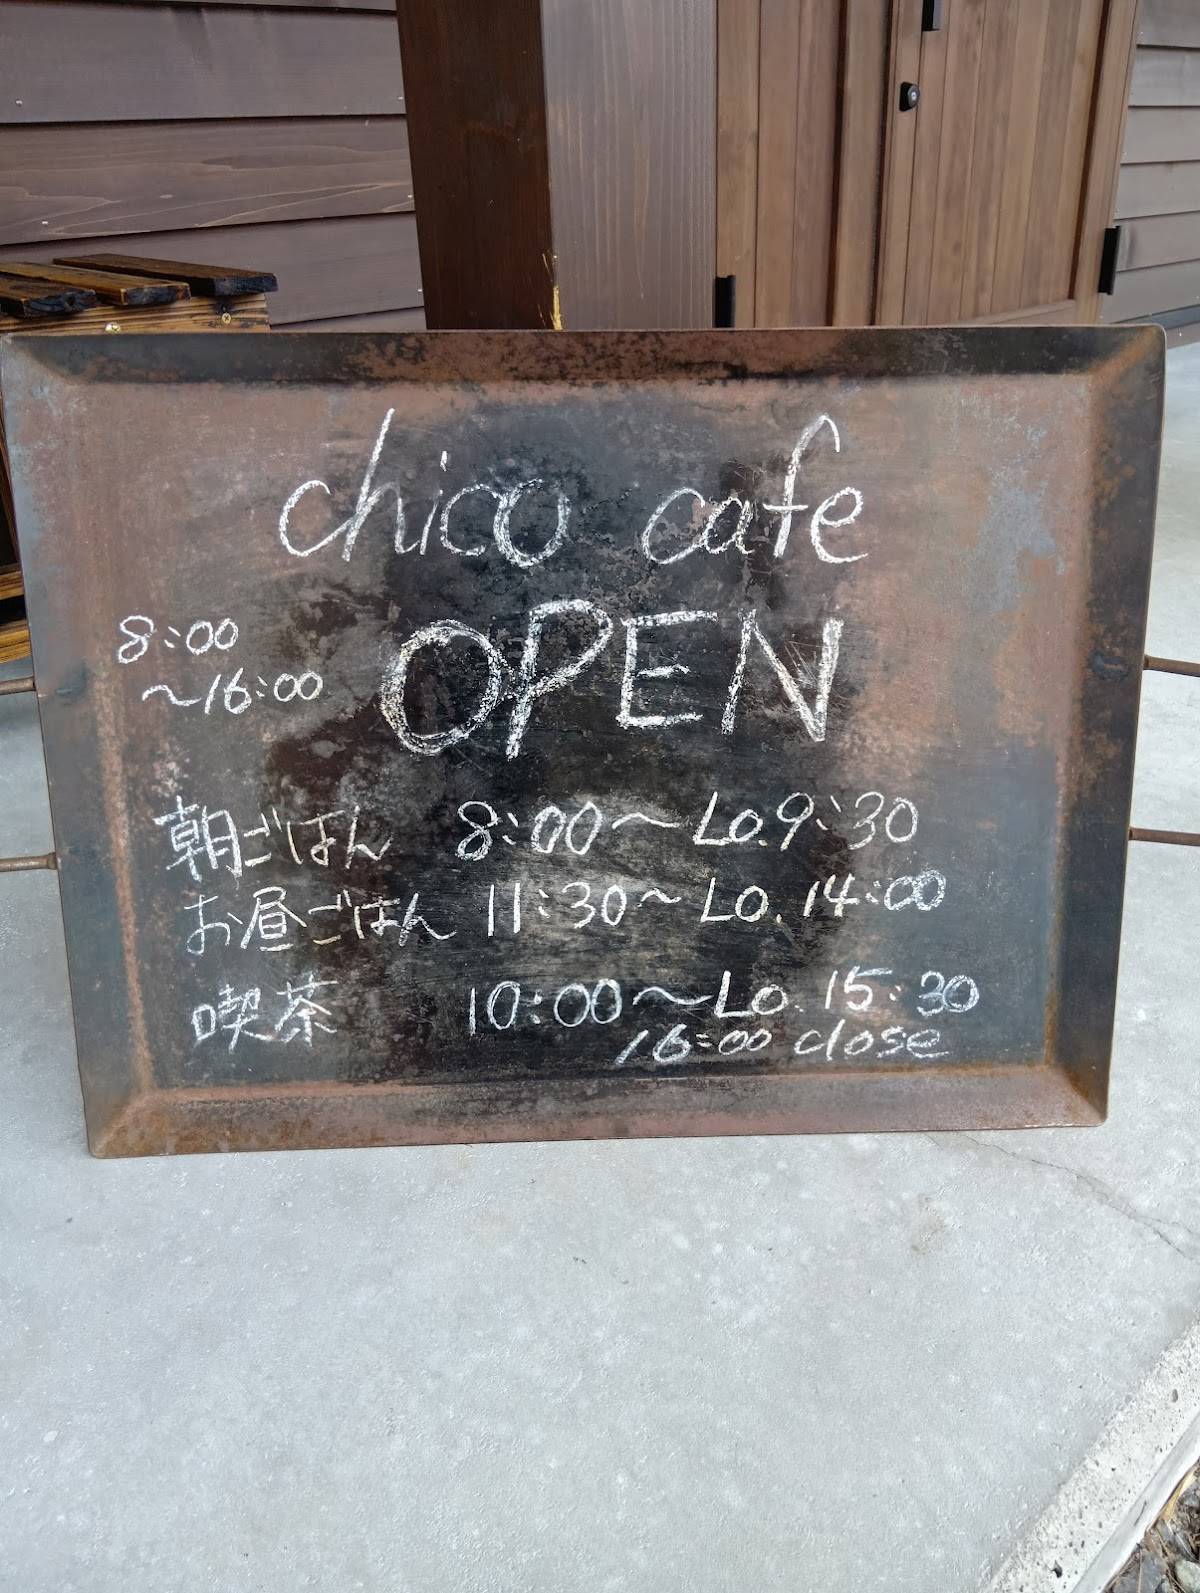 chico cafe
OPEN
8:00
~16:00
朝ごはん 8:00~Lo.9:30
お昼ごはん 11:30~LO.14:00
喫茶 10:00~Lo.15:30
16:00 close